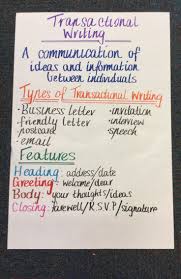 Transactional
Writing
A communication of
ideas and information
between individuals
Types of Transactional Writing
·Business letter
·friendly letter
·postcard
·email
·invitation
·interview
·speech
Features
Heading: address/date
Greeting: welcome/dear
Body: your thoughts/ideas
Closing: farewell/R.S.V.P/signature